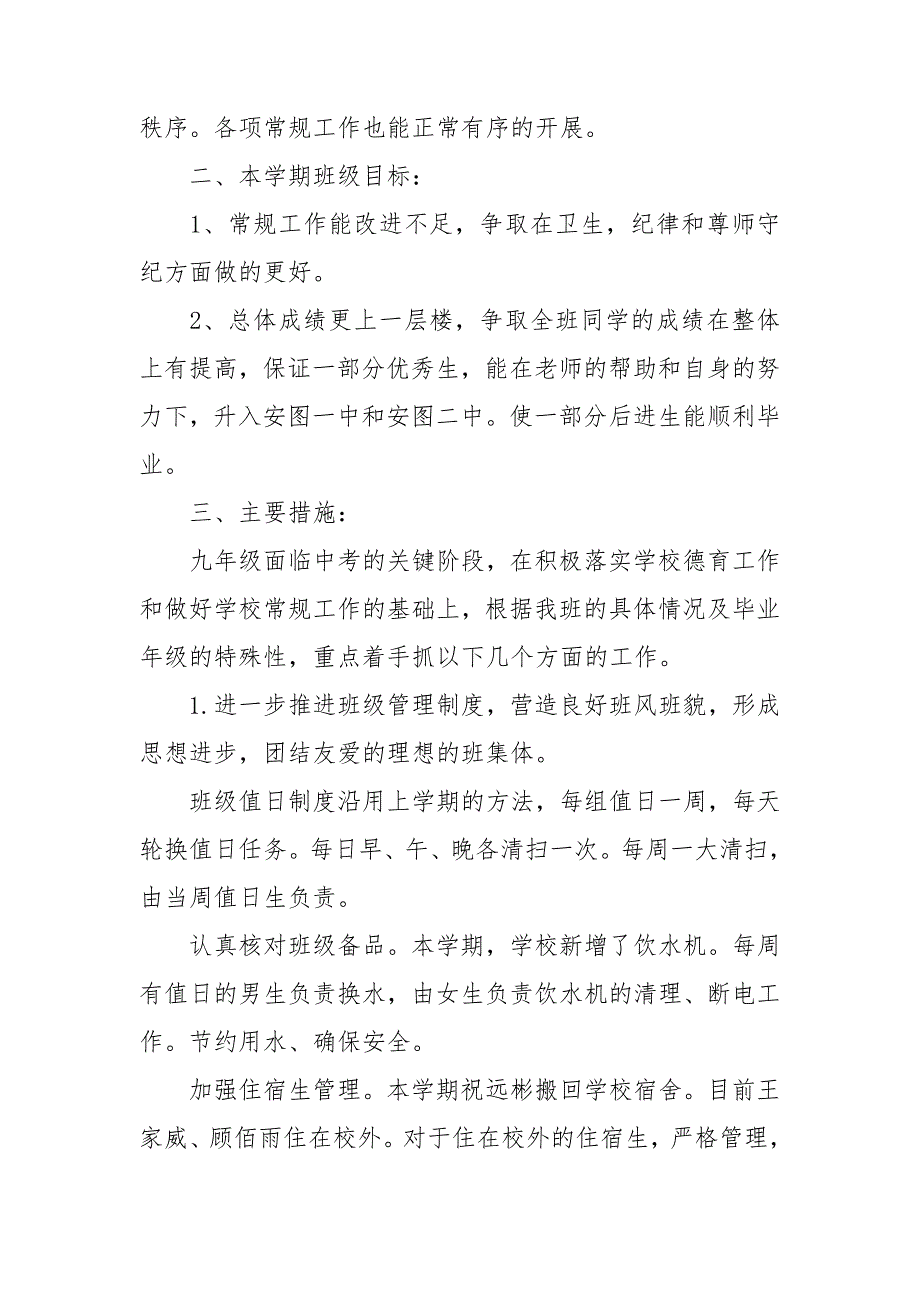 秩序。各项常规工作也能正常有序的开展。
二、本学期班级目标：
1、常规工作能改进不足，争取在卫生，纪律和尊师守
纪方面做的更好。
2、总体成绩更上一层楼，争取全班同学的成绩在整体
上有提高，保证一部分优秀生，能在老师的帮助和自身的努
力下，升入安图一中和安图二中。使一部分后进生能顺利毕
业。
三、主要措施：
九年级面临中考的关键阶段，在积极落实学校德育工作
和做好学校常规工作的基础上，根据我班的具体情况及毕业
年级的特殊性，重点着手抓以下几个方面的工作。
1.进一步推进班级管理制度，营造良好班风班貌，形成
思想进步，团结友爱的理想的班集体。
班级值日制度沿用上学期的方法，每组值日一周，每天
轮换值日任务。每日早、午、晚各清扫一次。每周一大清扫，
由当周值日生负责。
认真核对班级备品。本学期，学校新增了饮水机。每周
有值日的男生负责换水，由女生负责饮水机的清理、断电工
作。节约用水、确保安全。
加强住宿生管理。本学期祝远彬搬回学校宿舍。目前王
家威、顾佰雨住在校外。对于住在校外的住宿生，严格管理，